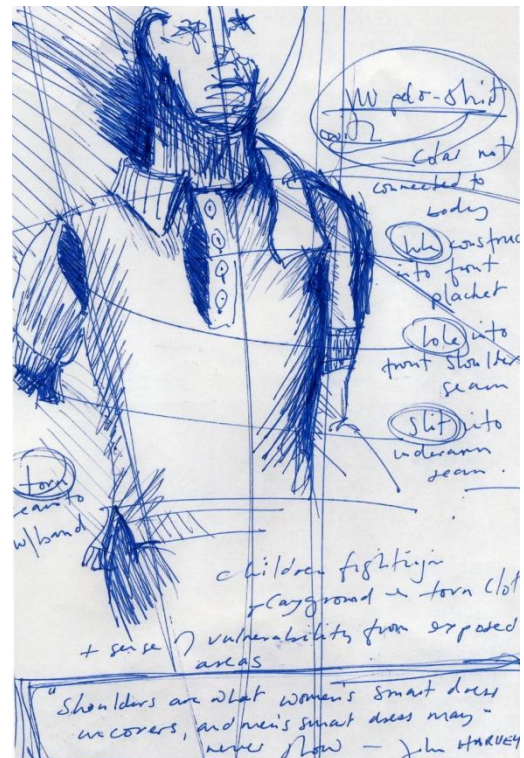 polo-shirt
with
collar not
connected to
body
hole construc
into front
placket
hole into
front shoulder
seam
slit into
underarm
seam.
torn
seam to
w/band
children fighting in
playground in torn clot
+ sense of vulnerability from exposed
areas
"Shoulders are what women's smart dress
uncovers, and men's smart dress may
never show" – John HARVEY